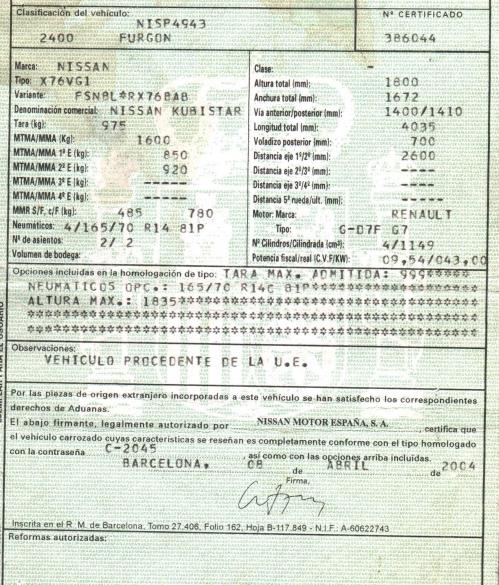 Clasificación del vehículo:
NISP4943
Nº CERTIFICADO
2400 FURGON
386044
Marca: NISSAN
Tipo: X76VG1
Variante: FSNBL*RX76BAB
Denominación comercial: NISSAN KUBISTAR
Tara (kg): 975
MTMA/MMA (Kg): 1600
MTMA/MMA 1º E (kg): 850
MTMA/MMA 2º E (kg): 920
MTMA/MMA 3º E (kg): -----
MTMA/MMA 4º E (kg): -----
MMR S/F, c/F (kg): 485 780
Neumáticos: 4/165/70 R14 81P
Nº de asientos: 2/ 2
Volumen de bodega:
Clase: -
Altura total (mm): 1800
Anchura total (mm): 1672
Vía anterior/posterior (mm): 1400/1410
Longitud total (mm): 4035
Voladizo posterior (mm): 700
Distancia eje 1º/2º (mm): 2600
Distancia eje 2º/3º (mm): -----
Distancia eje 3º/4º (mm): -----
Distancia 5ª rueda/últ. (mm): -----
Motor: Marca: RENAULT
Tipo: G-D7F G7
Nº Cilindros/Cilindrada (cm³): 4/1149
Potencia fiscal/real (C.V.F/KW): 09,54/043,00
Opciones incluidas en la homologación de tipo: TARA MAX. ADMITIDA: 999*****
NEUMATICOS OPC.: 165/70 R14C 81P*******************
ALTURA MAX.: 1835**********************************
***************************************************
***************************************************
Observaciones:
VEHICULO PROCEDENTE DE LA U.E.
Por las piezas de origen extranjero incorporadas a este vehículo se han satisfecho los correspondientes
derechos de Aduanas.
El abajo firmante, legalmente autorizado por NISSAN MOTOR ESPAÑA, S. A. , certifica que
el vehículo carrozado cuyas características se reseñan es completamente conforme con el tipo homologado
con la contraseña C-2045 , así como con las opciones arriba incluidas.
BARCELONA, 08 de ABRIL de 2004
Firma,
Inscrita en el R. M. de Barcelona, Tomo 27.406, Folio 162, Hoja B-117.849 - N.I.F.: A-60622743
Reformas autorizadas: